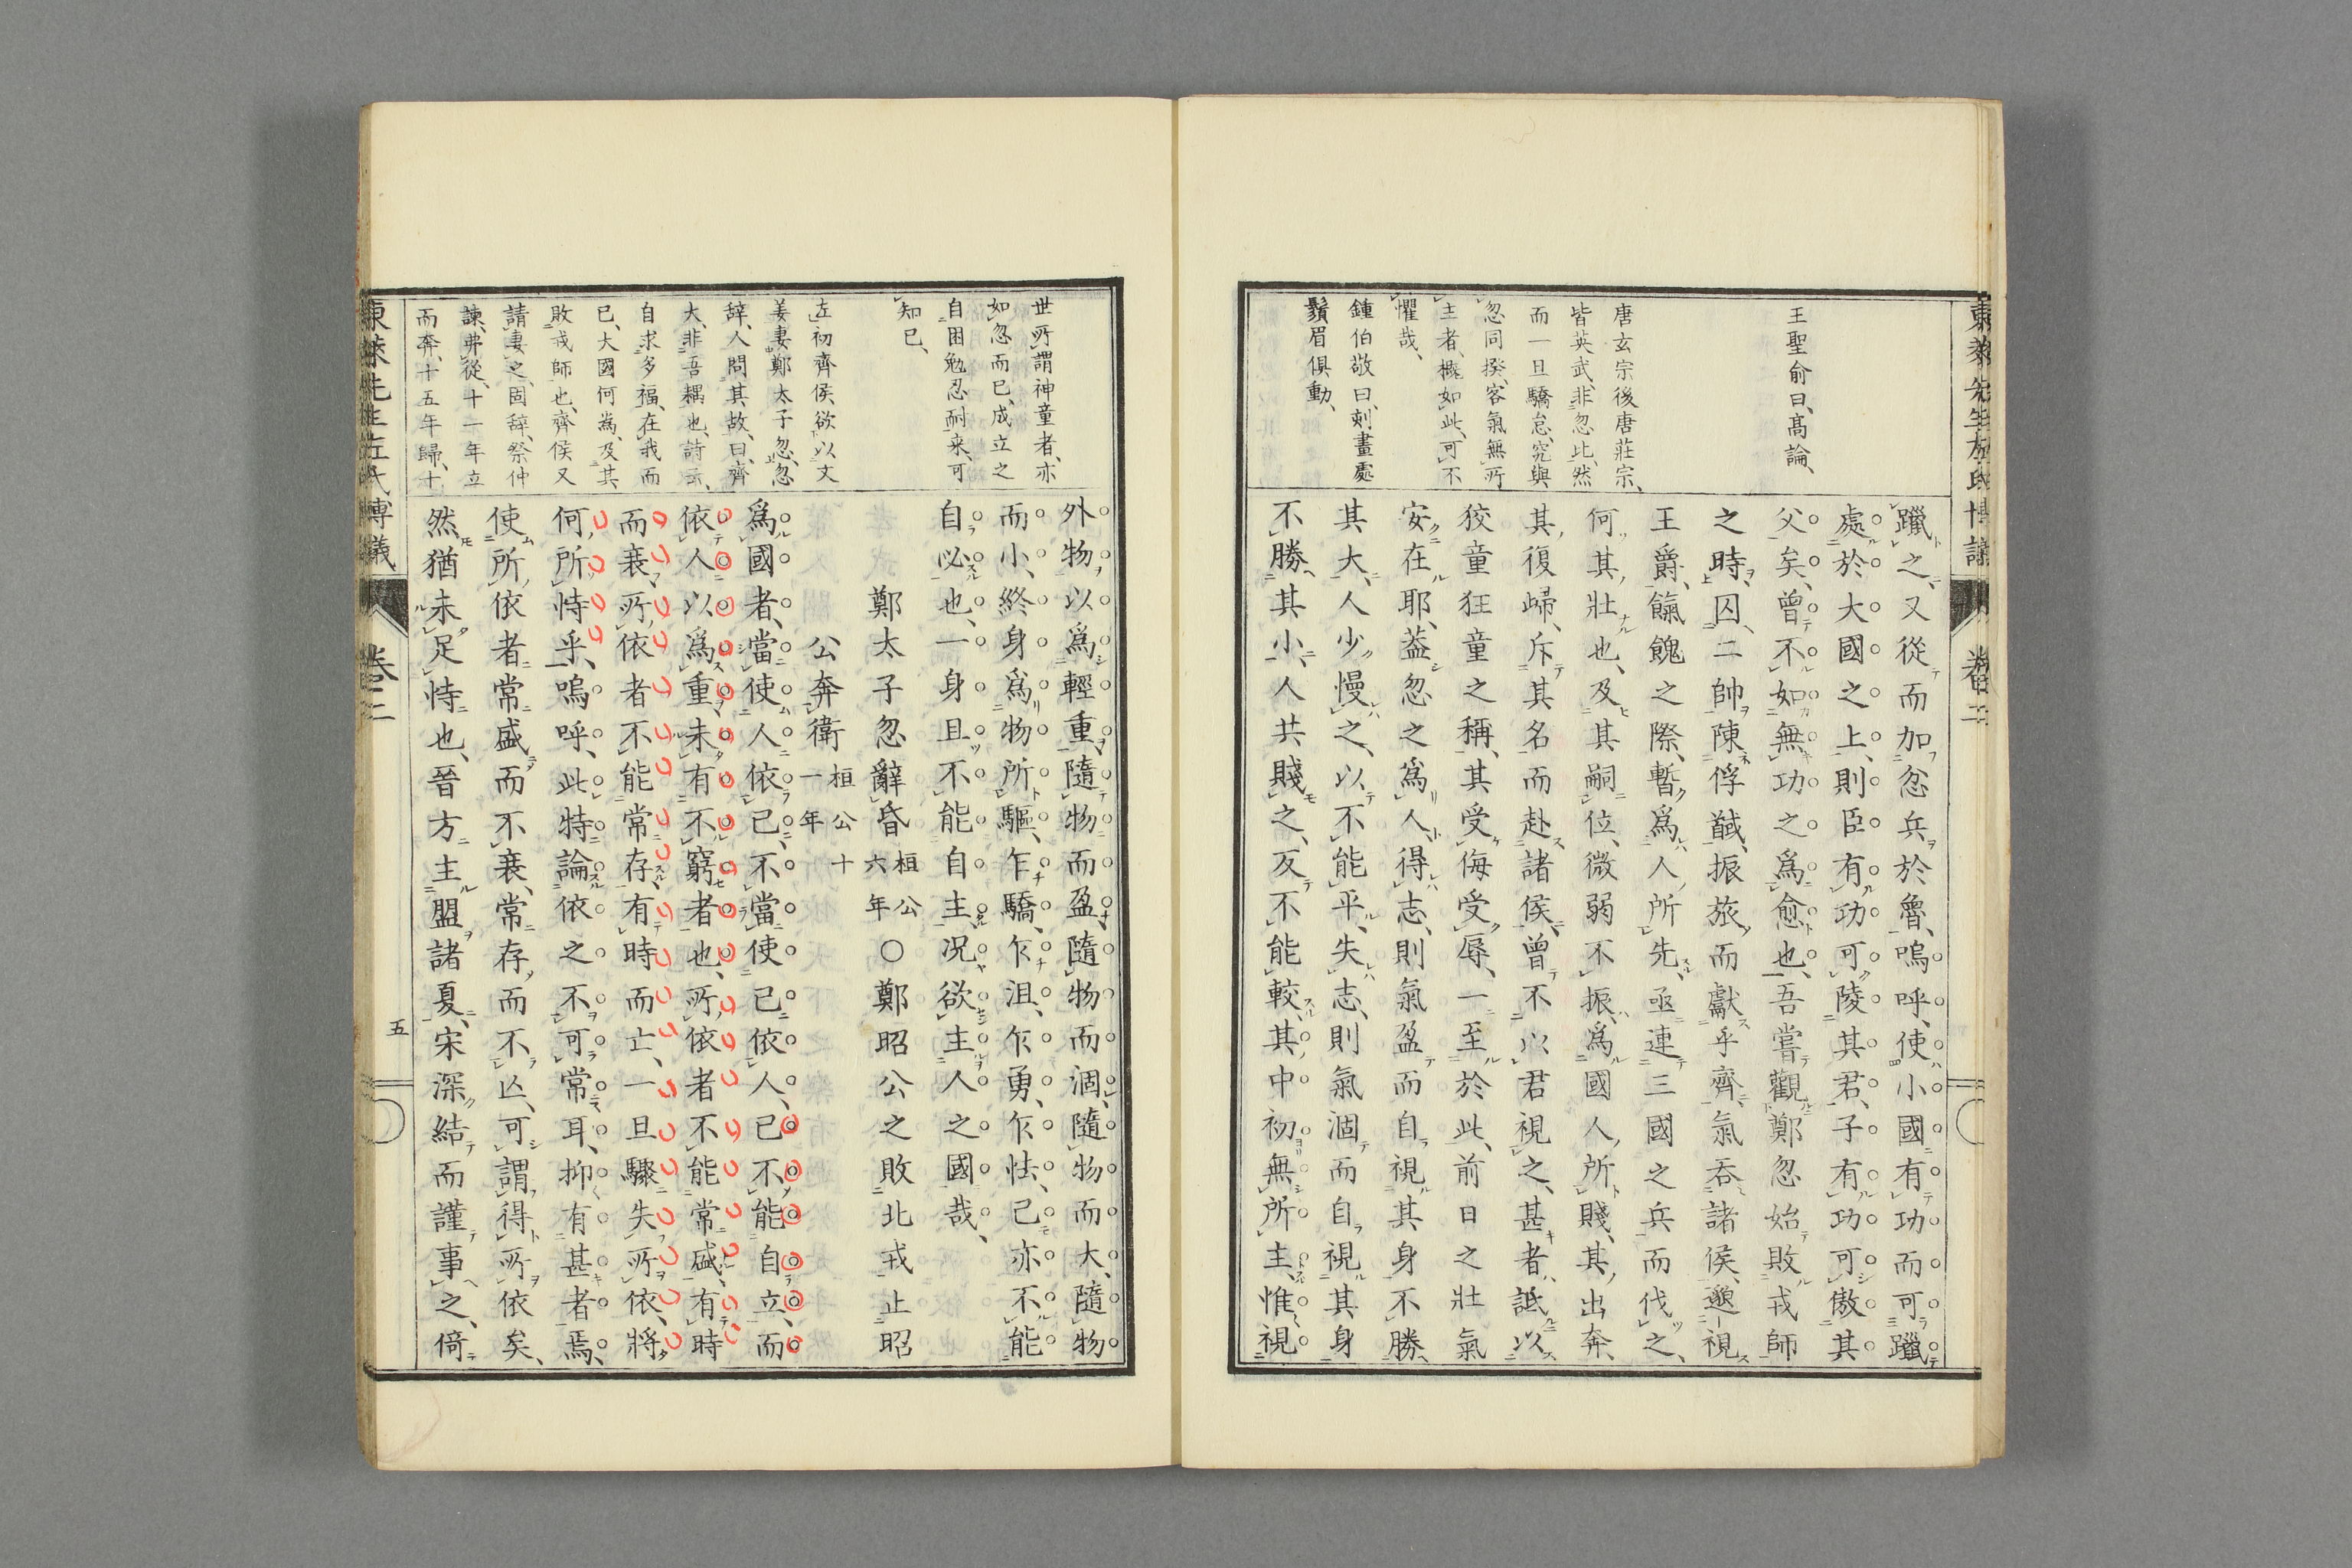 東萊先生左氏博議
卷二
王聖俞曰、高論、
唐玄宗後唐莊宗、
皆英武、非忽比、然
而一旦驕怠、究與
忽同揆、客氣無所
主者、概如此、可不
懼哉、
鍾伯敬曰、刻畫處
鬚眉俱動、
躐之、又從而加忿兵於魯、嗚呼、使小國有功而可躐
處於大國之上、則臣有功可陵其君、子有功可傲其
父矣、曾不如無功之爲愈也、吾嘗觀鄭忽始敗戎師
之時、囚二帥、陳俘馘、振旅而獻乎齊、氣吞諸侯、邈視
王爵、餼餽之際、暫爲人所先、亟連三國之兵而伐之、
何其壯也、及其嗣位、微弱不振、爲國人所賤、其出奔、
其復歸、斥其名而赴諸侯、曾不以君視之、甚者詆以
狡童狂童之稱、其受侮受辱、一至於此、前日之壯氣
安在耶、蓋忽之爲人、得志、則氣盈而自視其身不勝
其大、人少慢之、以不能平、失志、則氣涸而自視其身
不勝其小、人共賤之、反不能較、其中初無所主、惟視
世所謂神童者、亦
如忽而已、成立之
自困勉忍耐來、可
知已、
左初齊侯欲以文
姜妻鄭太子忽、忽
辭、人問其故、曰、齊
大、非吾耦也、詩云、
自求多福、在我而
已、大國何爲、及其
敗戎師也、齊侯又
請妻之、固辭、祭仲
諫、弗從、十一年立
而奔、十五年歸、十
外物以爲輕重、隨物而盈、隨物而涸、隨物而大、隨物
而小、終身爲物所驅、乍驕、乍沮、乍勇、乍怯、己亦不能
自必也、一身且不能自主、況欲主人之國哉、
鄭太子忽辭昏桓公六年○鄭昭公之敗北戎止昭
公奔衛桓公十一年
爲國者、當使人依己、不當使己依人、己不能自立、而
依人以爲重、未有不窮者也、所依者不能常盛、有時
而衰、所依者不能常存、有時而亡、一旦驟失所依、將
何所恃乎、嗚呼、此特論依之不可常耳、抑有甚者焉、
使所依者常盛而不衰、常存而不亡、可謂得所依矣、
然猶未足恃也、晉方主盟諸夏、宋深結而謹事之、倚
東萊先生左氏博議
卷二
五